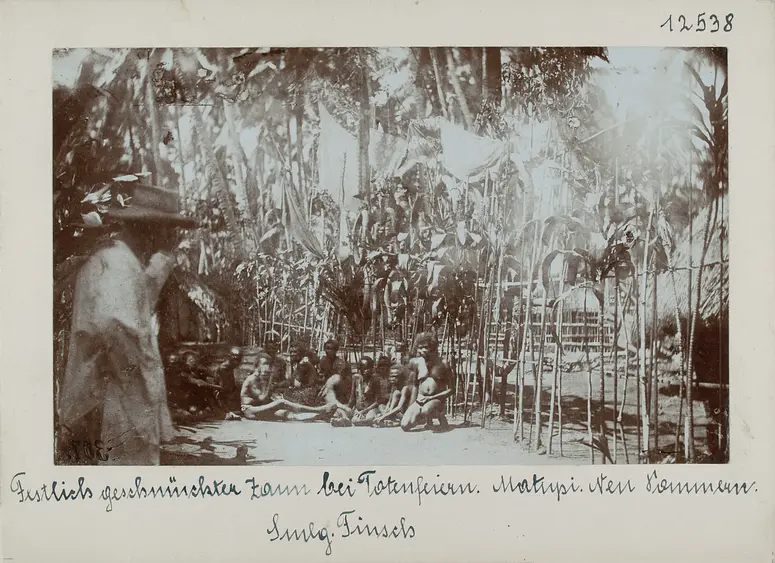 12538
Festlich geschmückter Zaun bei Totenfeiern. Matupi. Neu Pommern.
Smlg. Finsch